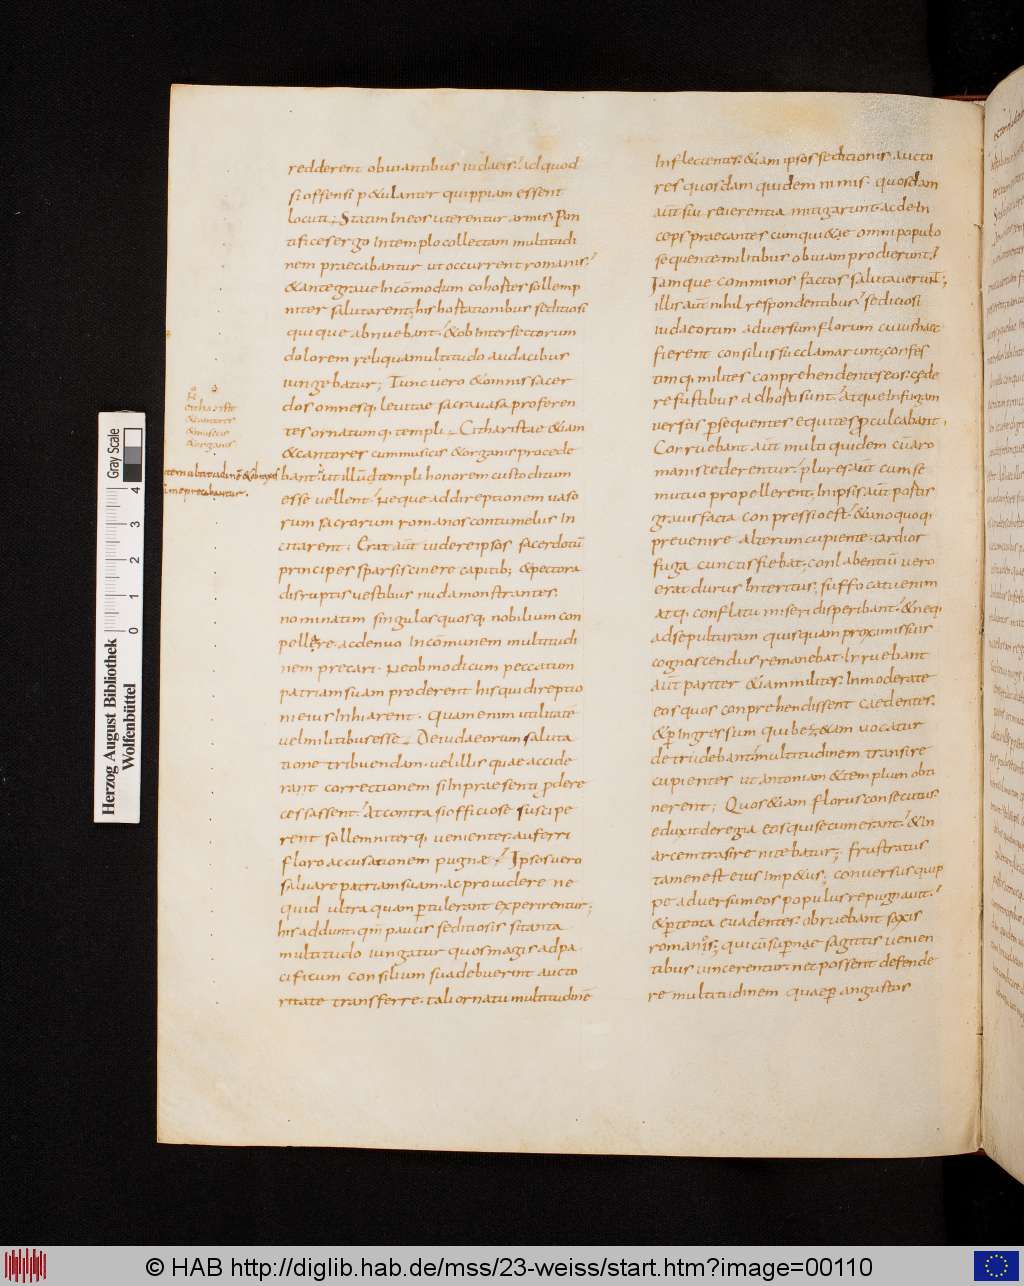 redderent obviantibus iudaeis. ad quod
si offensi p&ulanter quippiam essent
locuti; Statim In eos uterentur armis; Pon
tifices ergo In templo collectam multitudi
nem praecabantur ut occurrent romanis.
& ante grave Incōmodum cohostes sollemp
niter salutarent; his hostationibus seditiosi
qui que abnuebant. & ob Intersectorum
dolorem reliqua multitudo audacibus
iungebatur; Tunc vero & omnis sacer
dos omnesq; levitae sacra vasa proferen
tes ornatumq; templi. Citharistae &iam
& cantores cum musicis & organis procede
bant. ut illud templi honorem custoditum
esse vellent. Neque ad direptionem vaso
rum sacrorum romanos contumeliis In
citarent. Erat aūt videre ipsos sacerdotū
principes sparsis cinere capitib; & pectora
disruptis vestibus nuda monstrantes.
nominatim singulos quosq; nobilium con
pellere. ac denuo In cōmunem multitudi
nem precari. Ne ob modicum peccatum
patriam suam proderent his qui direptio
ni eius Inhiarent. Quam enim utilitatē
vel militibus esse. De iudaeorum saluta
tione tribuendam. vel illis quae accide
rant correctionem si In praesenti pdere
cessassent. At contra si officiose suscipe
rent sollemniterq; venientes. auferri
floro accusationem pugnae. Ipsos vero
salvare patriam suam. ac providere ne
quid ultra quam ptulerant experirentur;
his addunt. qm̄ paucis seditiosis si tanta
multitudo iungatur quos magis ad pa
cificum consilium suadebuerint aucto
ritate transferre. tali ornatu multitudinē
citharistę
& cantores
& musicis
& organis
Inflectentes. &iam ipsos seditionis aucto
res quosdam quidem minis. quosdam
aūt sui reverentia mitigarunt. ac de In
ceps praecantes cum qui&e omni populo
sequente militibus obviam prodierunt.
Iamque comminos factos salutaverunt;
illis aūt nihil respondentibus. seditiosi
iudaeorum adversum florum cuius haec
fierent consiliis succlamarunt; confes
timq; milites conprehendentes eos. cęde
re fustibus adhosti sunt. Atque In fugam
versos psequentes equites pculcabant.
Corruebant aūt multi quidem cū a ro
manis cederentur. plures aūt cum se
mutuo propellerent; In ipsis aūt portis
gravis facta conpressio est. & uno quoq;
prevenire alterum cupiente. tardior
fuga cunctis fiebat; conlabentiū vero
erat durus Interitus; suffocati enim
atq; conflatu miseri disperibant. & neq;
ad sepulturam quisquam proximis suis
cognoscendus remanebat. Irruebant
aūt pariter &iam milites. Inmoderate
eos quos conprehendissent caedentes.
& p Ingressum qui bezetam vocatur
detrudebant multitudinem transire
cupientes ut antoniam & templum obti
nerent; Quos &iam florus consecutus.
eduxit de regia eos qui secum erant. & In
arcem trasire nitebatur; frustratus
tamen est eius Imp&us; conversus quip
pe adversum eos populus repugnavit.
& p tecta evadentes. obruebant saxis
romanos; qui cū supnae sagittis venien
tibus vincerentur. nec possent defende
re multitudinem quae p angustos
Herzog August Bibliothek
Wolfenbüttel
0 1 2 3 4
Gray Scale
© HAB http://diglib.hab.de/mss/23-weiss/start.htm?image=00110